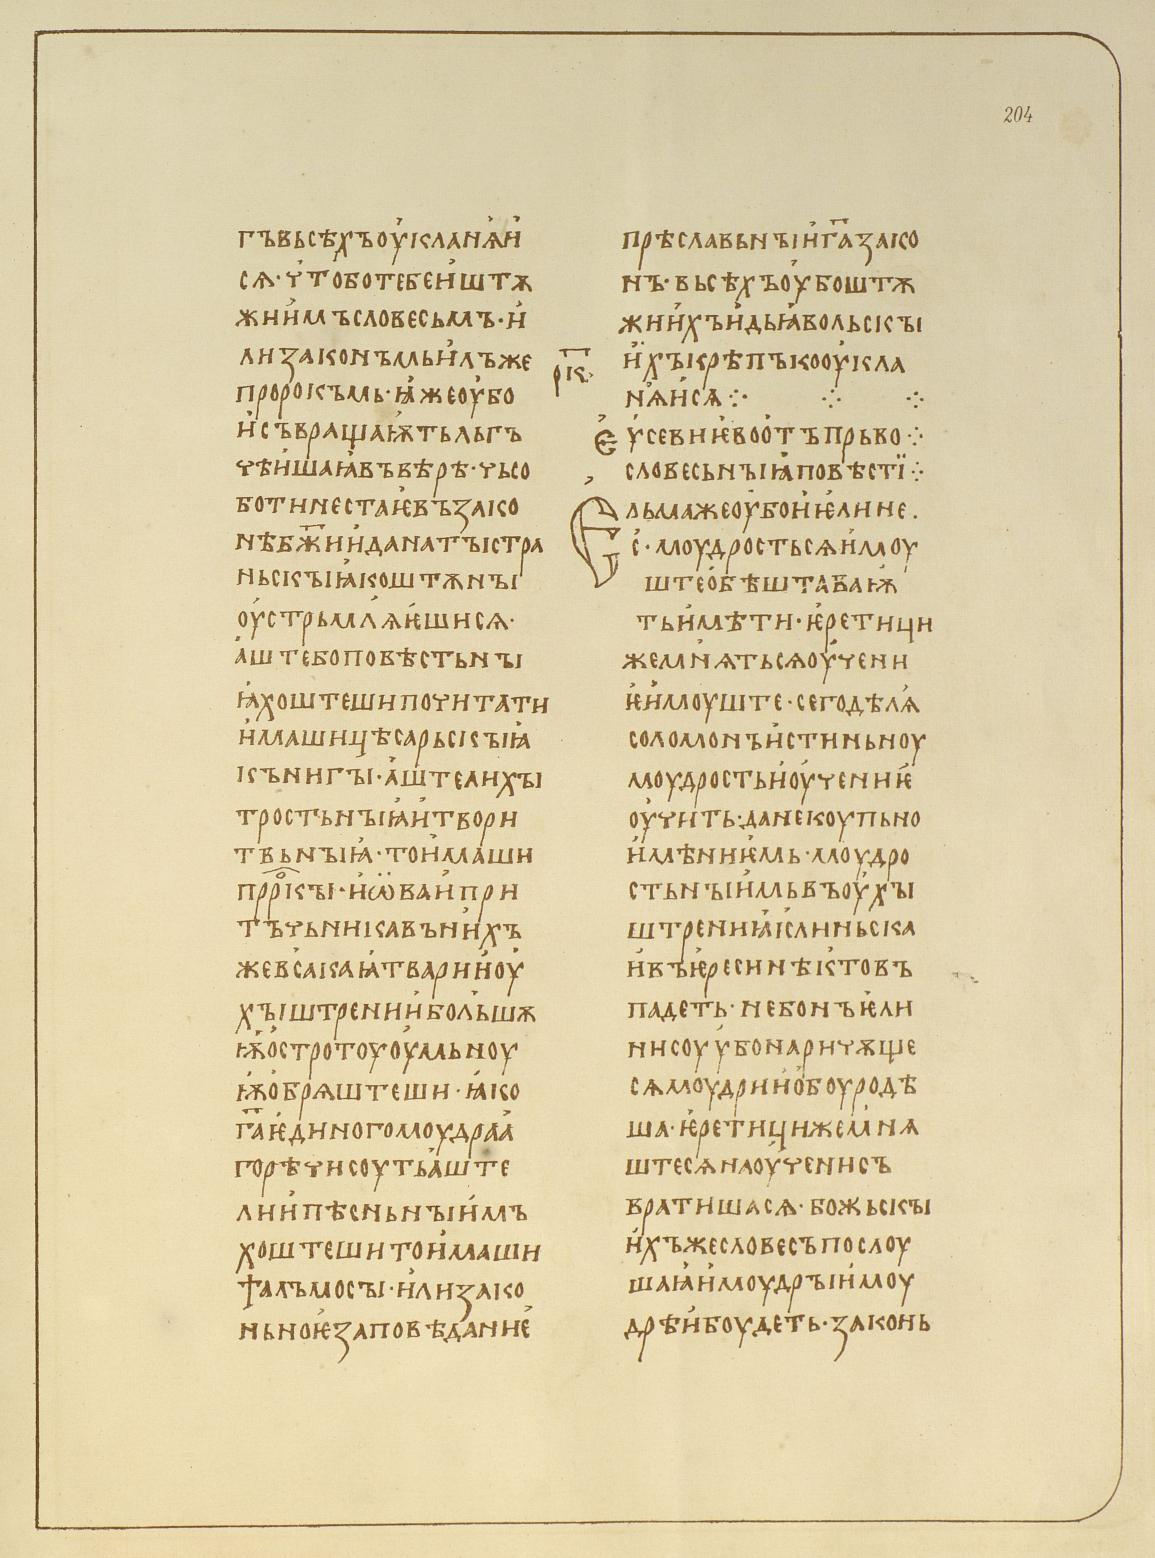 204
гъвьсѣхъоукланѩи
сѧ·чтоботебеиштѫ
жниимъсловесьмъ·и
лизакономъмьнилъже
пророкъмь·ꙗжеоубо
исъвращаѭтьльгъ
чѣишаꙗвъвѣрѣ·чьсо
ботинестаѥвъзако
нѣбж҃ииданатъистра
ньскыꙗкоштѫны
оустрьмлѧѥшисѧ·
аштебоповѣстьны
ꙗхоштешипочитати
имашицѣсарьскыꙗ
кънигы·аштелихы
тростьныꙗитвори
твьныꙗ·тоимаши
прр҃кы·иѡваипри
тъчьникавънихъ
жевсакаꙗтвариноу
хыштрениибольшѫ
ѭостротоуоумьноу
ѭобрѧштеши·ꙗко
га҃ѥдиногомоудраа
горѣчисоутьаште
лиипѣсньныимъ
хоштешитоимаши
ѱалъмосы·илизако
ньноѥзаповѣданиѥ
прѣславьныига҃зако
нъ·вьсѣхъоубоштѫ
жиихъидьꙗвольскы
рк҃·
ихъкрѣпъкооукла
нѩисѧ⁘ ⁘ ⁘
еусевиѥвоотъпрьво⁘
словесьныꙗповѣсти⁘
Ельмажеоубоиѥлине.
с·моудростьсѧимоу
штеобѣштаваѭ
тьимѣти·ѥретици
жемнѧтьсѧоучени
ѥимоуште·сегодѣлꙗ
соломонъистиньноу
моудростьиоучениѥ
оучить·данекоупьно
имѣниѥмь·моудро
стьныимьвъоухы
штрениꙗклиньска
ивъѥресинѣктовъ
падеть·небонъѥли
нисоуубонаричѫще
сѧмоудрииобоуродѣ
ша·ѥретицижемнѧ
штесѧнаоученисъ
вратишасѧ·божьскы
ихъжесловесъпослоу
шаꙗимоудрыимоу
дрѣибоудеть·законь